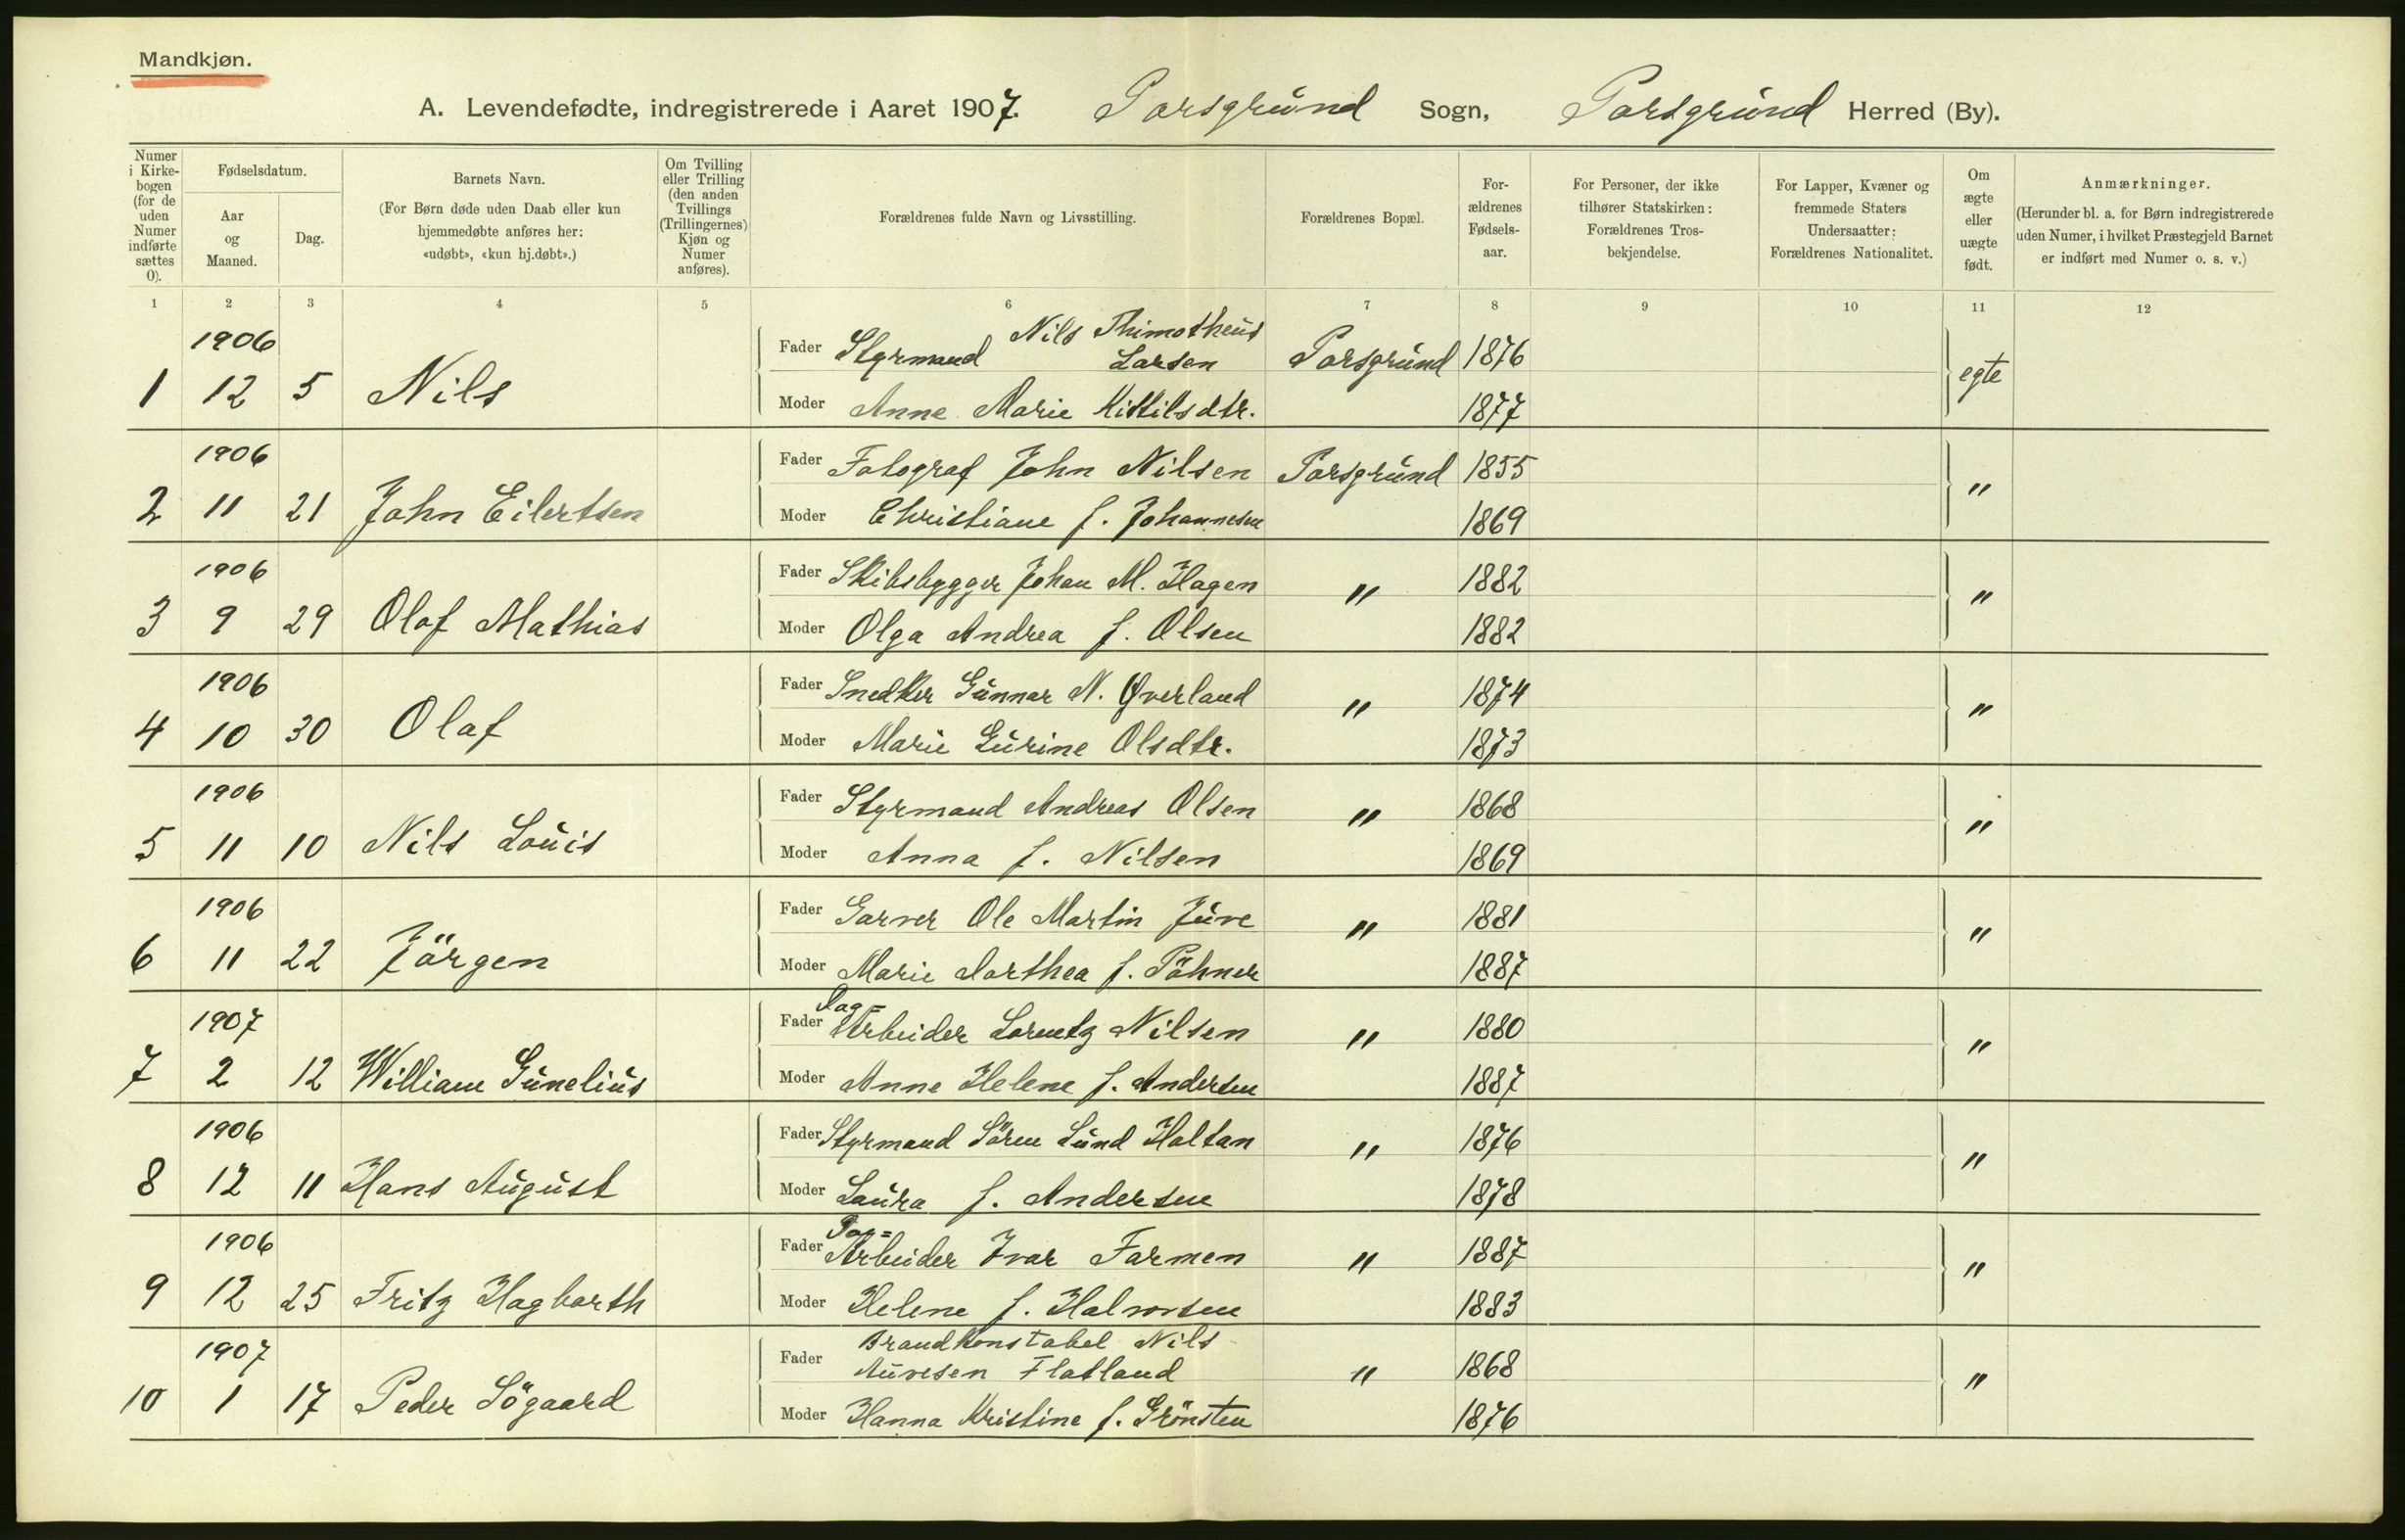 Mandkjøn.
A. Levendefødte, indregistrerede i Aaret 1907. Porsgrund Sogn, Porsgrund Herred (By).
Numer i Kirkebogen (for de uden Numer indførte sættes 0).
Fødselsdatum.
Aar og Maaned.
Dag.
Barnets Navn.
(For Børn døde uden Daab eller kun hjemmedøbte anføres her: «udøbt», «kun hj.døbt».)
Om Tvilling eller Trilling (den anden Tvillings (Trillingernes) Kjøn og Numer anføres).
Forældrenes fulde Navn og Livsstilling.
Forældrenes Bopæl.
Forældrenes Fødselsaar.
For Personer, der ikke tilhører Statskirken: Forældrenes Trosbekjendelse.
For Lapper, Kvæner og fremmede Staters Undersaatter: Forældrenes Nationalitet.
Om ægte eller uægte født.
Anmærkninger.
(Herunder bl. a. for Børn indregistrerede uden Numer, i hvilket Præstegjeld Barnet er indført med Numer o. s. v.)
1 2 3 4 5 6 7 8 9 10 11 12
1906 Fader Styrmand Nils Thimotheus Larsen Porsgrund 1876 egte
1 12 5 Nils Moder Anne Marie Kittilsdtr. 1877
1906 Fader Fotograf John Nilsen Porsgrund 1855 "
2 11 21 John Eilertsen Moder Christiane f. Johannesen 1869
1906 Fader Skibsbygger Johan M. Hagen " 1882 "
3 9 29 Olaf Mathias Moder Olga Andrea f. Olsen 1882
1906 Fader Snedker Gunnar N. Øverland " 1874 "
4 10 30 Olaf Moder Marie Gurine Olsdtr. 1873
1906 Fader Styrmand Andreas Olsen " 1868 "
5 11 10 Nils Louis Moder Anna f. Nilsen 1869
1906 Fader Garver Ole Martin Juve " 1881 "
6 11 22 Jörgen Moder Marie Dorthea f. Pöhner 1887
1907 Fader Dag=Arbeider Lorentz Nilsen " 1880 "
7 2 12 William Gunelius Moder Anne Helene f. Andersen 1887
1906 Fader Styrmand Sören Lund Holtan " 1876 "
8 12 11 Hans August Moder Laura f. Andersen 1878
1906 Fader Dag=Arbeider Ivar Farmen " 1887 "
9 12 25 Fritz Hagbarth Moder Helene f. Halvorsen 1883
1907 Fader Brandkonstabel Nils Auvesen Flatland " 1868 "
10 1 17 Peder Sögaard Moder Hanna Kristine f. Grönsten 1876